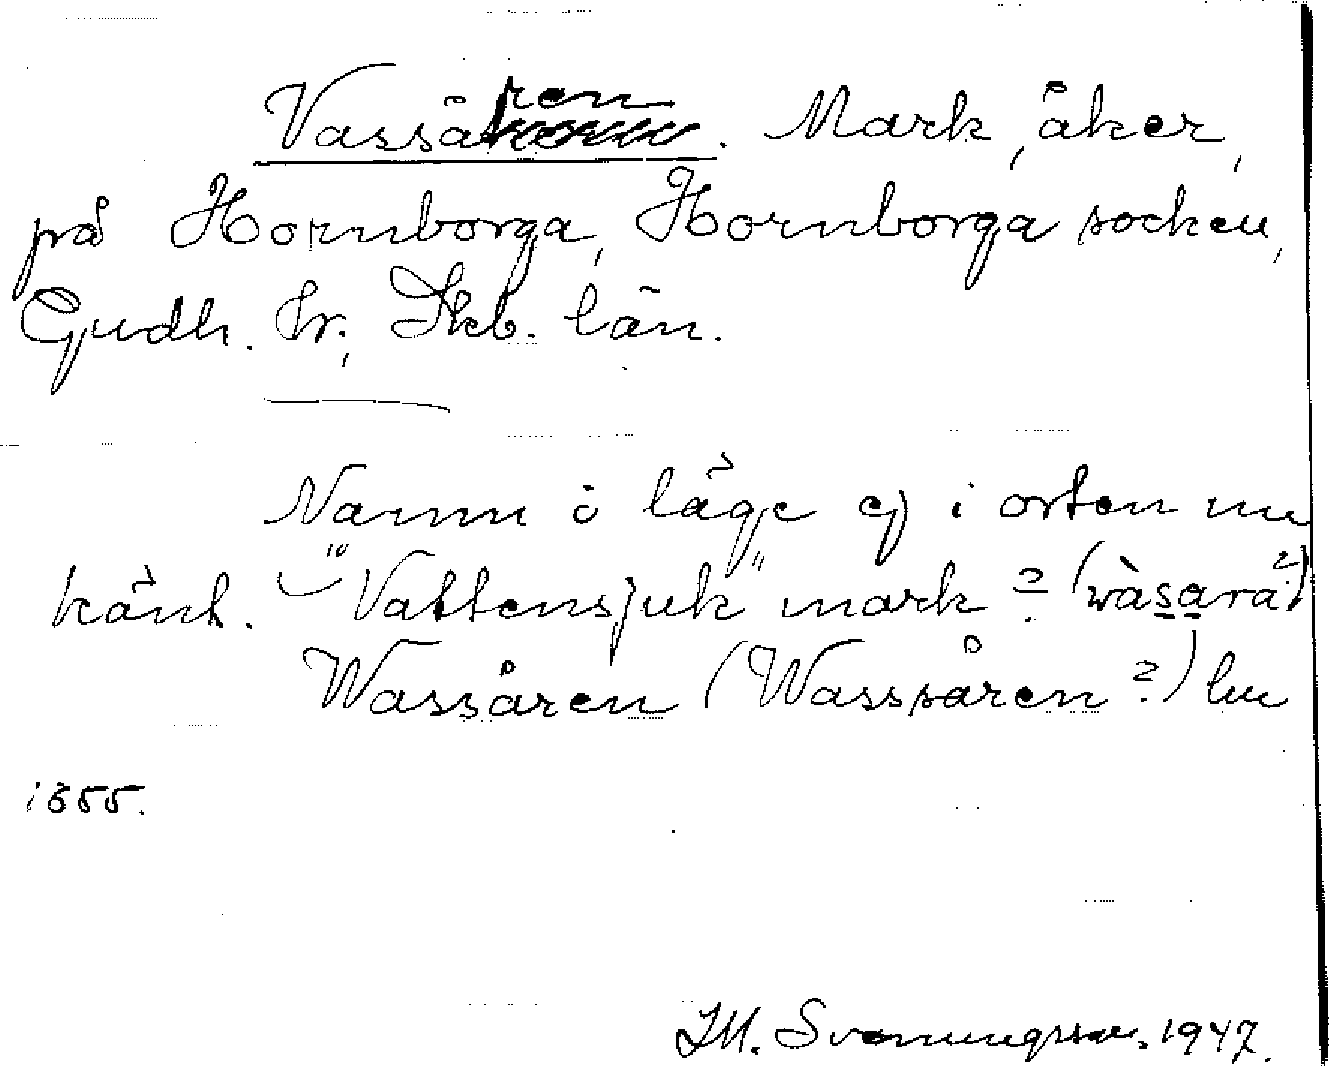 Vassären. Mark, åker,
på Hornborga, Hornborga socken,
Gudh. hr., Skb. län.
Namn o läge ej i orten nu
känt. "Vattensjuk" mark? (vàsarä?)
Wassåren (Wasspåren?) lm
1855.
J.M. Svenningsson. 1947.